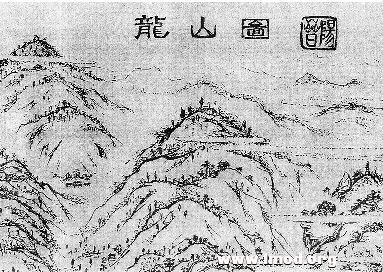 龍山圖 晉陽
www.lmod.org